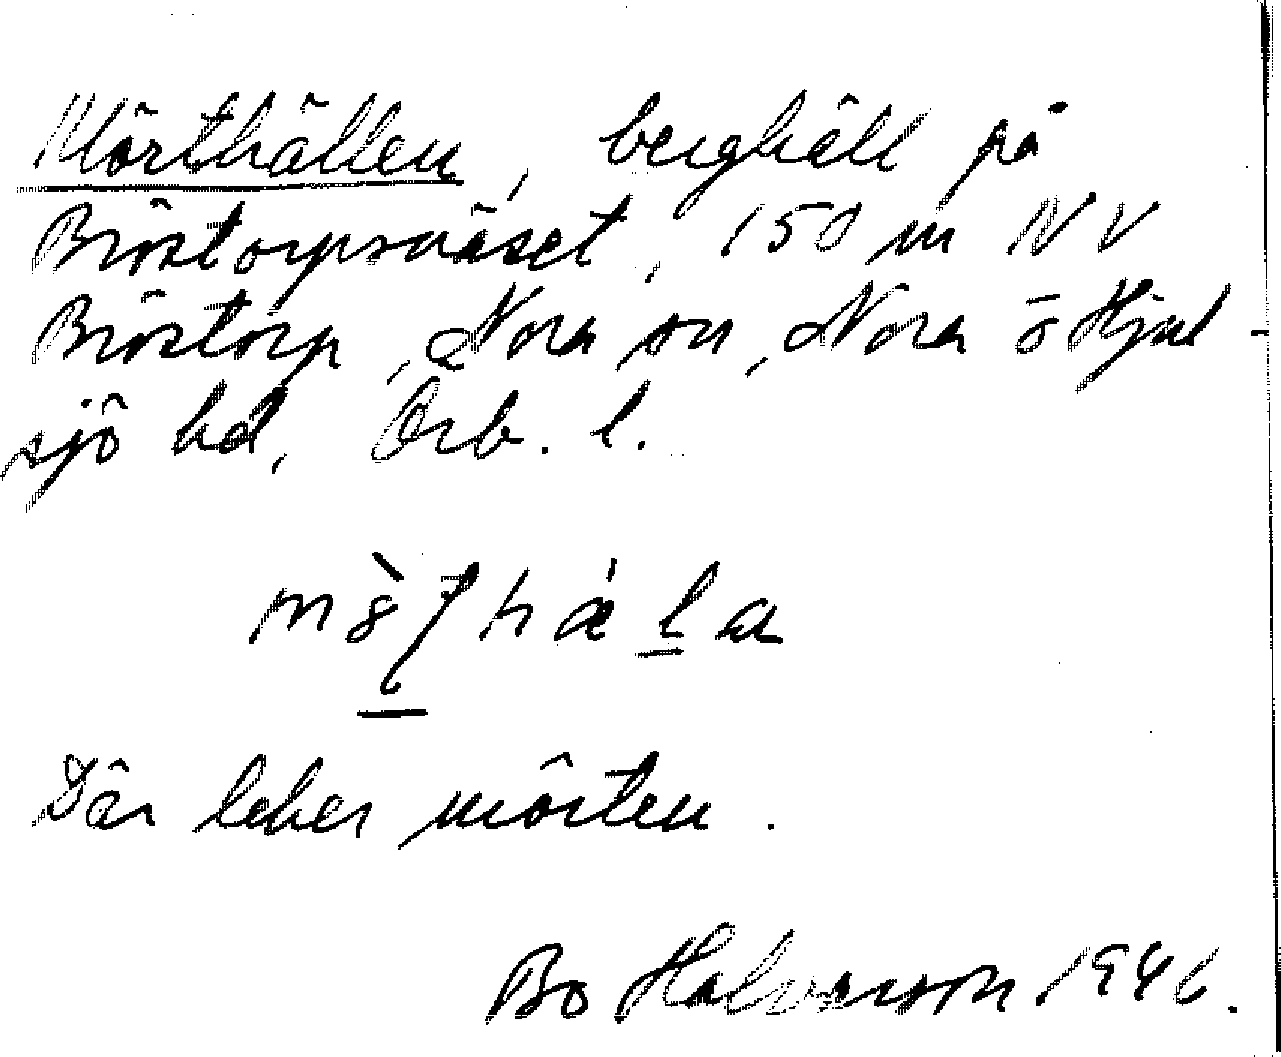 Mörthällen, berghäll på
Bröstorpsnäset, 150 m NV
Bröstorp, Nora sn, Nora o Hjul-
sjö hd, Örb. l.
Där leker mörten.
Bo Halvarsson 1946.